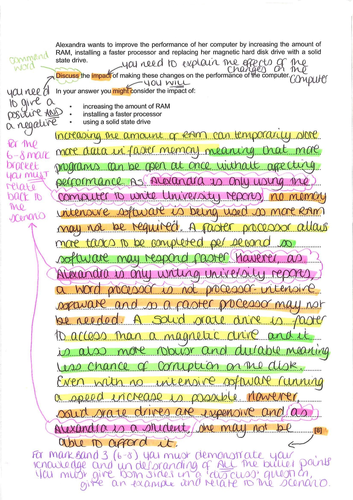 Alexandra wants to improve the performance of her computer by increasing the amount of
RAM, installing a faster processor and replacing her magnetic hard disk drive with a solid
state drive.
command
word
you need to explain the effects of
the changes on the
computer
Discuss the impact of making these changes on the performance of the computer.
you need
to give a
positive AND
a negative
you WILL
In your answer you might consider the impact of:
• increasing the amount of RAM
• installing a faster processor
• using a solid state drive
For the
6-8 mark
bracket
you must
relate
back to
the
scenario
Increasing the amount of RAM can temporarily store
more data in faster memory meaning that more
programs can be open at once without affecting
performance. As Alexandra is only using the
computer to write University reports, no memory
intensive software is being used so more RAM
may not be required. A faster processor allows
more tasks to be completed per second so
software may respond faster. However, as
Alexandra is only writing university reports,
a word processor is not processor intensive
software and so a faster processor may not
be needed. A solid state drive is faster
to access than a magnetic drive and it
is also more robust and durable meaning
less chance of corruption on the disk.
Even with no intensive software running
a speed increase is possible. However,
solid state drives are expensive and as
Alexandra is a student, she may not be
able to afford it.
[8]
For mark band 3 (6-8) you must demonstrate your
knowledge and understanding of ALL the bullet points
You must give both sides in a 'discuss' question,
give an example and relate to the scenario.